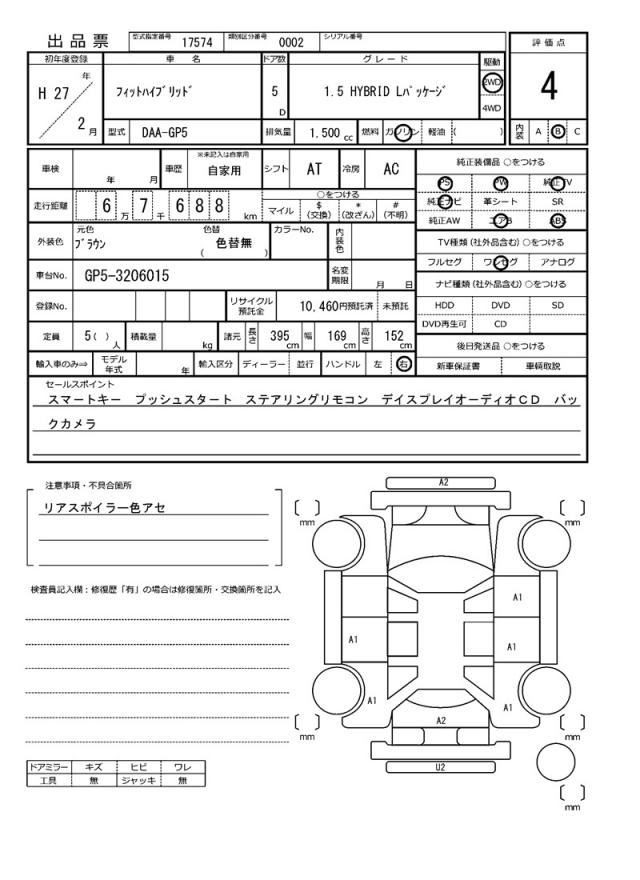 出品票 型式指定番号 17574 類別区分番号 0002 シリアル番号
評価点
4
初年度登録 車名 ドア数 グレード 駆動
H 27 年 2 月 フィットハイブリッド 5 D 1.5 HYBRID Lパッケージ 2WD 4WD
型式 DAA-GP5 排気量 1.500 cc 燃料 ガソリン 軽油 ( ) 内装 A B C
車検 年 月 車歴 ※未記入は自家用 自家用 シフト AT 冷房 AC
走行距離 6 万 7 千 6 8 8 km
○をつける
マイル $ (交換) * (改ざん) # (不明)
外装色 元色 ブラウン 色替 色替無 ( ) カラーNo. 内装色
車台No. GP5-3206015 名変期限 月 日
登録No. リサイクル預託金 10,460円預託済 未預託
定員 5( ) 人 積載量 kg 諸元 長さ 395 cm 幅 169 cm 高さ 152 cm
輸入車のみ⇒ モデル年式 年 輸入区分 ディーラー 並行 ハンドル 左 右
純正装備品 ○をつける
PS PW 純正TV
純正ナビ 革シート SR
純正AW エアB ABS
TV種類 (社外品含む) ○をつける
フルセグ ワンセグ アナログ
ナビ種類 (社外品含む) ○をつける
HDD DVD SD
DVD再生可 CD
後日発送品 ○をつける
新車保証書 車輌取説
セールスポイント
スマートキー プッシュスタート ステアリングリモコン デイスプレイオーディオＣＤ バッ
クカメラ
注意事項・不具合箇所
リアスポイラー色アセ
検査員記入欄：修復歴「有」の場合は修復箇所・交換箇所を記入
A2
[ ] mm [ ] mm
A1
A1 A1
A1 A1
A2
[ ] mm [ ] mm
U2
[ ] mm
ドアミラー キズ ヒビ ワレ
工具 無 ジャッキ 無